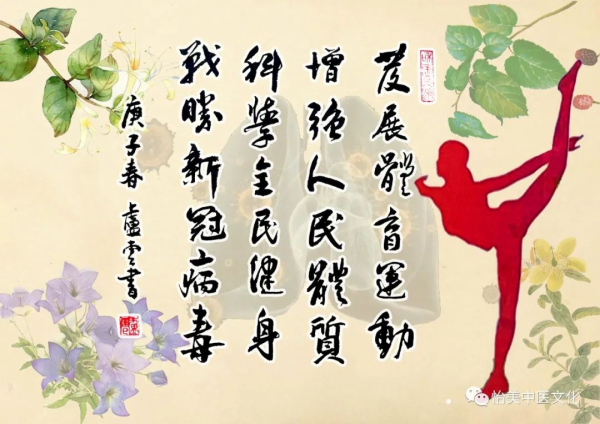 发展體育運動
增强人民體质
科学全民健身
戰勝新冠病毒
庚子春 盧雲書
怡美中医文化